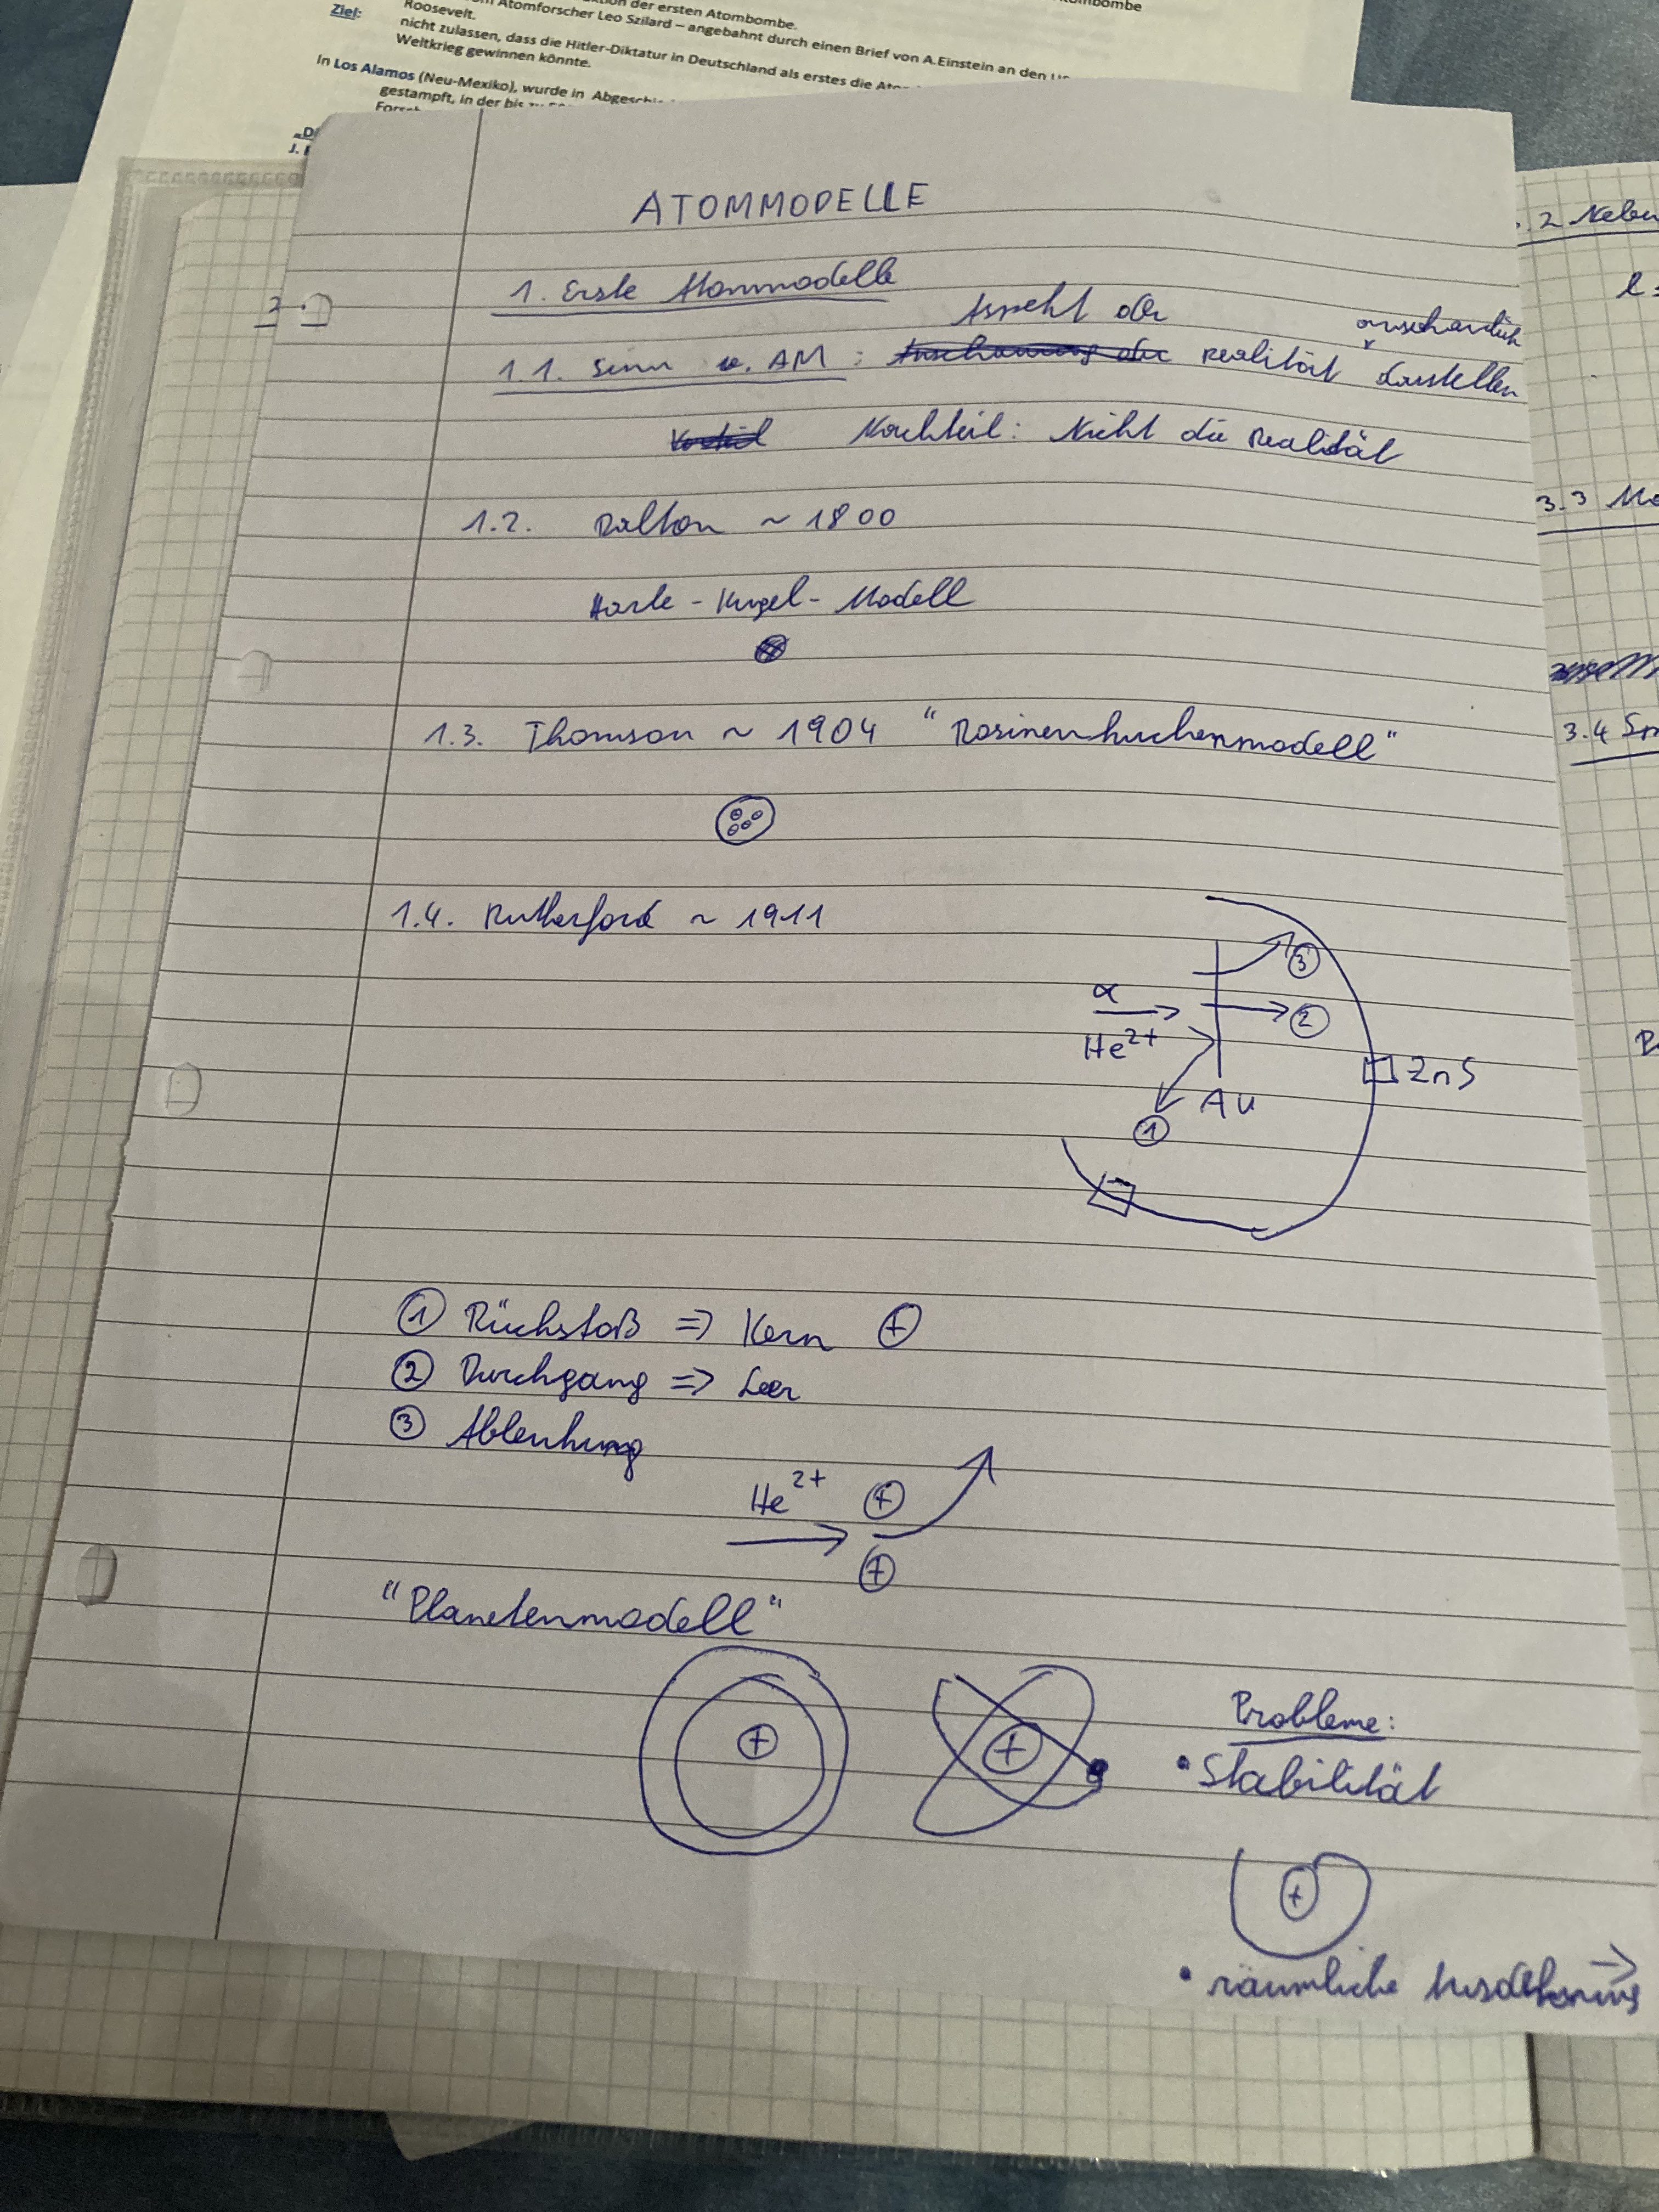 ktion der ersten Atombombe.
ombombe
m Atomforscher Leo Szilard – angebahnt durch einen Brief von A.Einstein an den
Roosevelt.
Ziel: nicht zulassen, dass die Hitler-Diktatur in Deutschland als erstes die
Weltkrieg gewinnen könnte.
In Los Alamos (Neu-Mexiko), wurde in
gestampft, in der bis
ATOMMODELLE
1. Erste Atommodelle
Aspekt der
anschaulich
1.1. Sinn v. AM : Anschauung der Realität darstellen
Vorteil Nachteil: Nicht die Realität
1.2. Dalton ~ 1800
Harte-Kugel-Modell
1.3. Thomson ~ 1904 "Rosinenkuchenmodell"
1.4. Rutherford ~ 1911
3
α
2
He2+
ZnS
Au
1
1 Rückstoß => Kern +
2 Durchgang => Leer
3 Ablenkung
He2+ +
+
"Planetenmodell"
+ +
Probleme:
• Stabilität
+
• räumliche
.2
3.3
3.4